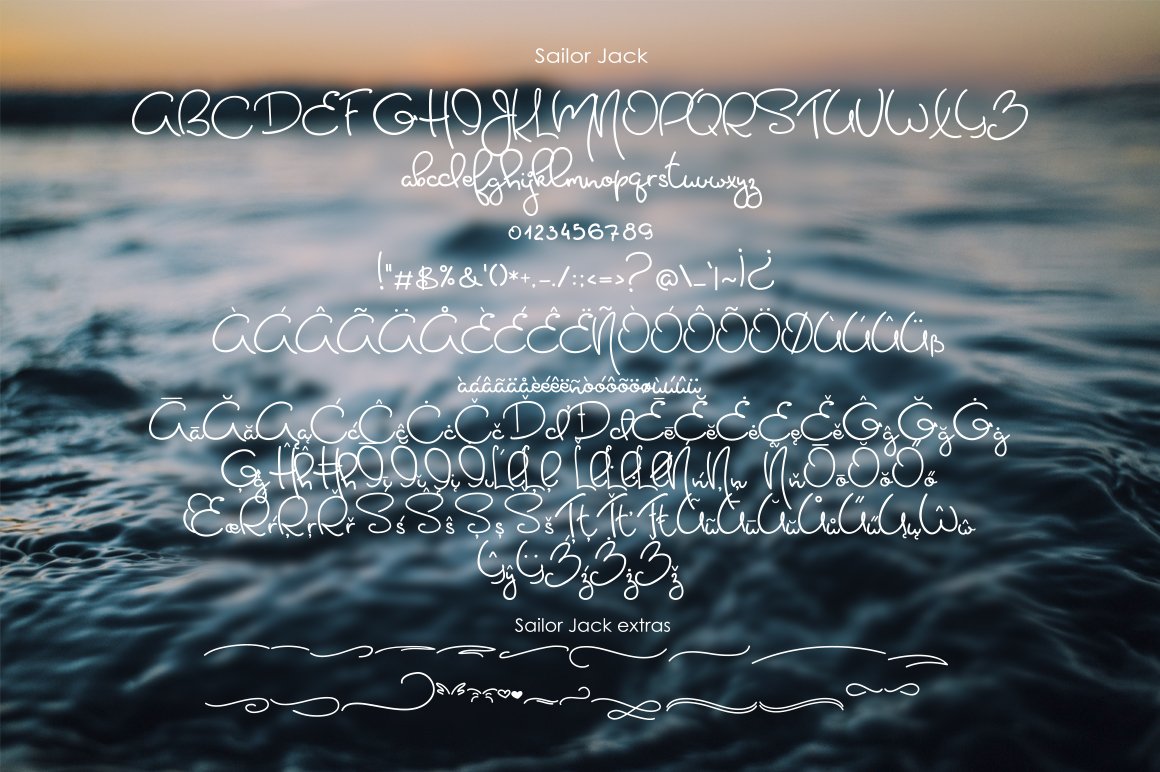 Sailor Jack
ABCDEFGHIJKLMNOPQRSTUVWXYZ
abcdefghijklmnopqrstuvwxyz
0123456789
!"#$%&'()*+,-./:;<=>?@\_`|~¡¿
ÀÁÂÃÄÅÈÉÊËÑÒÓÔÕÖØÙÚÛÜß
àáâãäåèéêëñòóôõöøùúûü
ĀāĂăĄąĆćĈĉĊċČčĎďĐđĒēĔĕĖėĘęĚěĜĝĞğĠġ
ŌōŎŏŐő
ŒœŔŕŖŗŘřŚśŜŝŞşŠšŢţŤťŦŧŨũŪūŬŭŮůŰűŲųŴŵ
ŶŷŸŹźŻżŽž
Sailor Jack extras